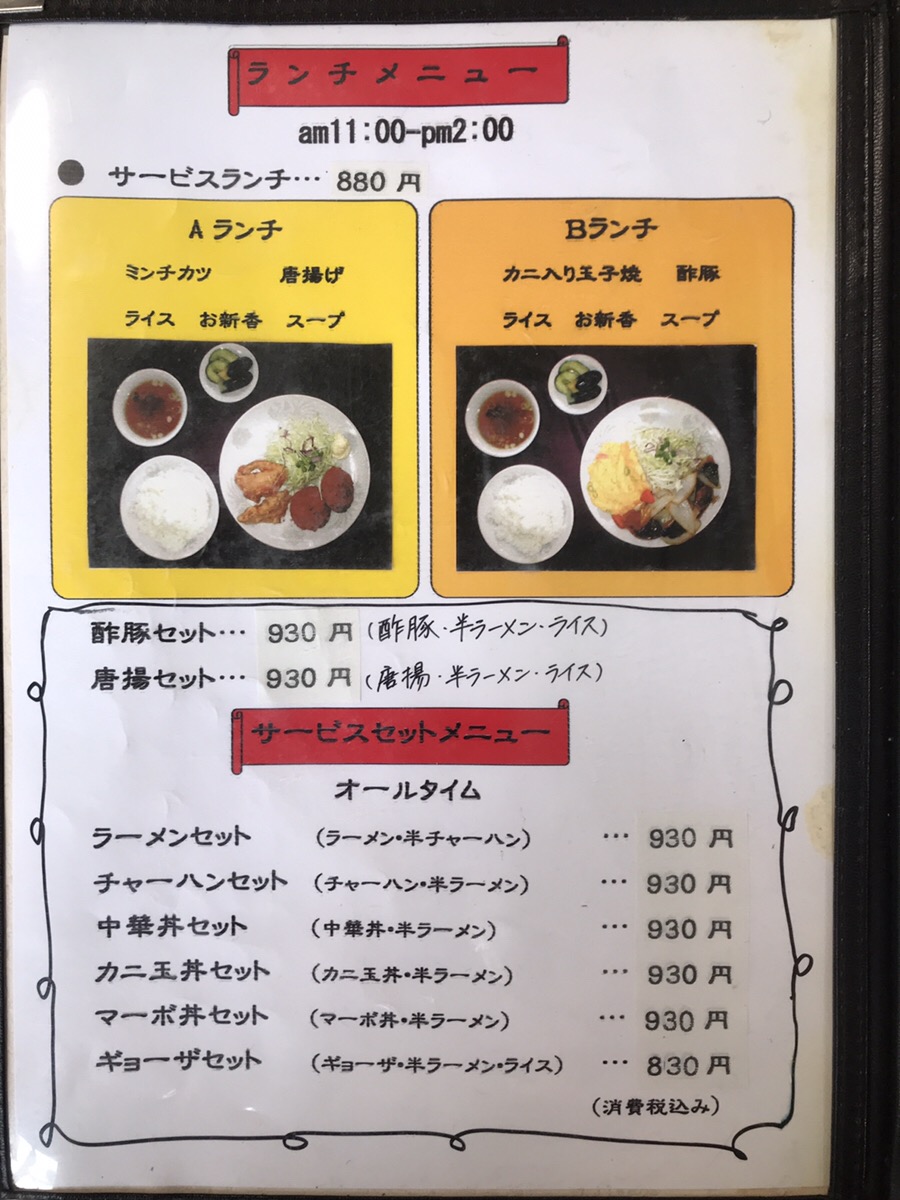 ランチメニュー
am11:00-pm2:00
● サービスランチ… 880 円
A ランチ
ミンチカツ 唐揚げ
ライス お新香 スープ
Bランチ
カニ入り玉子焼 酢豚
ライス お新香 スープ
酢豚セット… 930 円 (酢豚・半ラーメン・ライス)
唐揚セット… 930 円 (唐揚・半ラーメン・ライス)
サービスセットメニュー
オールタイム
ラーメンセット (ラーメン・半チャーハン) … 930 円
チャーハンセット (チャーハン・半ラーメン) … 930 円
中華丼セット (中華丼・半ラーメン) … 930 円
カニ玉丼セット (カニ玉丼・半ラーメン) … 930 円
マーボ丼セット (マーボ丼・半ラーメン) … 930 円
ギョーザセット (ギョーザ・半ラーメン・ライス) … 830 円
(消費税込み)